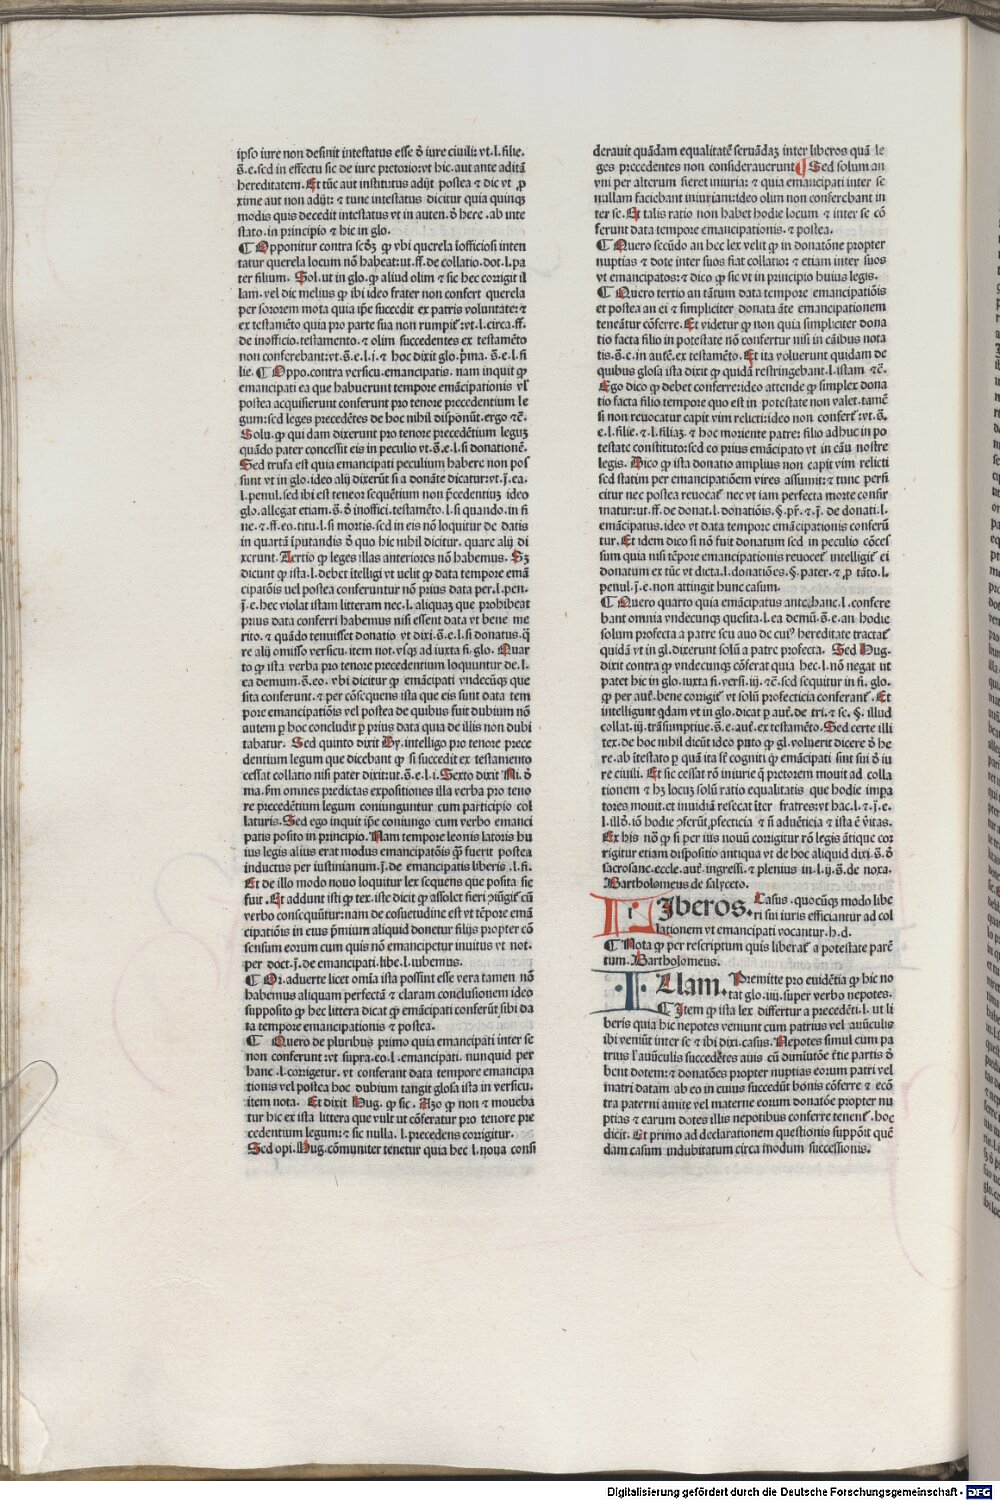 ipso iure non desinit intestatus esse ð iure ciuili: vt .l. filie.
s̄.e. sed in effectu sic de iure pretorio: vt hic. aut ante aditā
hereditatem. Et tūc aut institutus adijt postea ⁊ dic vt ꝓ
xime aut non adijt: ⁊ tunc intestatus dicitur quia quinqꝫ
modis quis decedit intestatus vt in auten. ð here. ab inte
stato. in principio ⁊ hic in glo.
¶ Opponitur contra ꝙ vbi querela īofficiosi inten
tatur querela locum nō habeat: ut. ff. de collatio. dot. l. pa
ter filium. Sol. ut in glo. ꝙ aliud olim ⁊ sic hec corrigit il
lam. vel dic melius ꝙ ibi ideo frater non confert querela
per sororem mota quia ip̄e succedit ex patris voluntate: ⁊
ex testamēto quia pro parte sua non rumpit᷑: vt. l. circa. ff.
de inofficio. testamento. ⁊ olim succedentes ex testamēto
non conferebant: vt. s̄. e. l. i. ⁊ hoc dixit glo. p̄ma. s̄. e. l. fi
lie. ¶ Oppo. contra versicu. emancipatis. nam inquit ꝙ
emancipati ea que habuerunt tempore emācipationis vl̄
postea acquisierunt conferunt pro tenore precedentium le
gum: sed leges precedētes de hoc nihil disponūt. ergo ⁊c̄.
Solu. ꝙ qui dam dixerunt pro tenore precedētium leguꝫ
quādo pater concessit eis in peculio vt. s̄. e. l. si donatione.
Sed trufa est quia emancipati peculium habere non pos
sunt vt in glo. ideo alij dixerūt si a donāte dicatur: vt. j. ea.
l. penul. sed ibi est teneor sequētium non p̄cedentiuꝫ ideo
glo. allegat etiam. s̄. ð inoffici. testamēto. l. si quando. in fi
ne. ⁊. ff. eo. titu. l. si mortis. sed in eis nō loquitur de datis
in quartā īputandis ð quo hic nihil dicitur. quare alij di
xerunt. Tertio ꝙ leges illas anteriores nō habemus. Sꝫ
dicunt ꝙ ista. l. debet itelligi vt uelit ꝙ data tempore emā
cipatōis uel postea conferuntur nō prius data per. l. pen.
j. e. hec violat istam litteram nec. l. aliquaꝫ que prohibeat
prius data conferri habemus nisi essent data vt bene me
rito. ⁊ quādo tenuisset donatio vt dixi. s̄. e. l. si donatus. q̄
re alij omisso versicu. item not. vsqꝫ ad iuxta fi. glo. Quar
to ꝙ ista verba pro tenore precedentium loquuntur de. l.
ea demum. s̄. eo. vbi dicitur ꝙ emācipati vndecūqꝫ que
sita conferunt. ⁊ per cōsequens ista que eis sunt data tem
pore emancipatiōis vel postea de quibus fuit dubium nō
autem ꝑ hoc concludit᷑ ꝑ prius data quia de illis non dubi
tabatur. Sed quinto dixit Hy. intelligo pro tenore prece
dentium legum que dicebant ꝙ si succedit ex testamento
cessat collatio nisi pater dixit: ut. s̄. e. l. i. Sexto dixit Ni. ð
ma. ꝙm omnes predictas expositiones illa verba pro teno
re precedētium legum coniunguntur cum participio col
laturis. Sed ego inquit ip̄e coniungo cum verbo emanci
patis posito in principio. Nam tempore leonis latoris hu
ius legis alius erat modus emancipatōis q̄ꝫ fuerit postea
inductus per iustinianum. j. de emancipatis liberis. l. fi.
Et de illo modo nouo loquitur lex sequens que posita sic
fuit. Et addunt isti ꝙ tex. iste dicit ꝙ assolet fieri cū
verbo consequūtur: nam de cosuetudine est vt tēpore emā
cipationis in eius p̄mium aliquid donetur filijs propter cō
sensum eorum cum quis nō emancipetur inuitus vt not.
per doct. j. de emancipati. libe. l. iubemus.
¶ Or. aduerte licet omīa ista possint esse vera tamen nō
habemus aliquam perfectā ⁊ claram conclusionem ideo
supposito ꝙ hec littera dicat ꝙ emācipati conferūt sibi da
ta tempore emancipationis ⁊ postea.
¶ Quero de pluribus primo quia emancipati inter se
non conferunt: vt supra. eo. l. emancipati. nunquid per
hanc .l. corrigetur. vt conferant data tempore emancipa
tionis vel postea hoc dubium tangit glosa ista in versicu.
item nota. Et dixit Hug. ꝙ sic. Azo ꝙ non ⁊ moueba
tur hic ex ista littera que vult ut cōferatur pro tenore pre
cedentium legum: ⁊ sic nulla. l. precedens corrigitur.
Sed opi. Hug. cōmuniter tenetur quia hec l. noua consi
derauit quādam equalitatē seruādaꝫ inter liberos quā le
ges precedentes non considerauerunt ¶ Sed solum an
vni per alterum fieret iniuria: ⁊ quia emancipati inter se
nullam faciebant iniuriam: ideo olim non conferebant in
ter se. Et talis ratio non habet hodie locum ⁊ inter se cō
ferunt data tempore emancipationis. ⁊ postea.
¶ Quero secūdo an hec lex velit ꝙ in donatōne propter
nuptias ⁊ dote inter suos fiat collatio: ⁊ etiam inter suos
vt emancipatos: ⁊ dico ꝙ sic vt in principio huius legis.
¶ Quero tertio an tātum data tempore emancipatiōis
et postea an ei ⁊ simpliciter donata āte emancipationem
teneātur cōferre. Et videtur ꝙ non quia simpliciter dona
tio facta filio in potestate nō confertur nisi in cāibus nota
tis. s̄. e. in aute. ex testamēto. Et ita voluerunt quidam de
quibus glosa ista dixit ꝙ quidā restringebant. l. istam ⁊c̄.
Ego dico ꝙ debet conferre: ideo attende ꝙ simplex dona
tio facta filio tempore quo est in potestate non valet. tamē
si non reuocatur capit vim relicti: ideo non confert᷑: vt. s̄.
e. l. filie. ⁊. l. filiaꝫ. ⁊ hoc moriente patre: filio adhuc in po
testate constituto: sed eo prius emācipato vt in cāu nostre
legis. Dico ꝙ ista donatio amplius non capit vim relicti
sed statim per emancipatiōem vires assumit: ⁊ tunc perfi
citur nec postea reuocat᷑ nec vt iam perfecta morte confir
matur: ut. ff. de donat. l. donatiōis. §. pr̄. ⁊. j. de donati. l.
emācipatus. ideo vt data tempore emācipationis conferū
tur. Et idem dico si nō fuit donatum sed in peculio cōces
sum quia nisi tēpore emancipationis reuocet᷑ intelligit᷑ ei
donatum ex tūc vt dicta. l. donatiōes. §. pater. ⁊ ꝓ tāto. l.
penul. j. e. non attingit hunc casum.
¶ Quero quarto quia emācipatus ante hanc. l. confere
bant omnia vndecunqꝫ quesita. l. ea demū. s̄. e. an hodie
solum profecta a patre seu auo de cuiꝰ hereditate tractat᷑
quidā vt in gl. dixerunt solū a patre profecta. Sed Hug.
dixit contra ꝙ vndecunqꝫ cōferat quia hec. l. nō negat ut
patet hic in glo. iuxta fi. versi. iij. ⁊c̄. sed sequitur in fi. glo.
ꝙ per aut̄. bene corrigit᷑ vt solū profecticia conferant᷑. Et
intelligunt q̇dam vt in glo. dicat ꝑ aut̄. de tri. ⁊ se. §. illud
collat. iij. trāsumptiue. s̄. e. aut̄. ex testamēto. Sed certe illi
tex. de hoc nihil dicūt ideo pūto ꝙ gl. voluerit dicere ð he
re. ab ītestato ꝑ quā ita sē cogniti ꝙ emācipati sint sui ð iu
re ciuili. Et sic cessat rō iniurie q̄ pretorem mouit ad colla
tionem ⁊ hꝫ locuꝫ solū ratio equalitatis que hodie impa
tores mouit. et inuidiā resecat īter fratres: vt hac. l. ⁊. j. e.
l. illð. iō hodie ꝯferūt ꝓfecticia ⁊ nō aduēticia ⁊ ista ē v̄itas.
Ex his nō ꝙ si per ius nouū corrigitur rō legis ātique cor
rigitur etiam dispositio antiqua vt de hoc aliquid dixi. s̄. ð
sacrosanc. eccle. aut̄. ingressi. ⁊ plenius in. l. ij. s̄. de noxa.
Bartholomeus de salyceto.
LIberos. Casus. quocūqꝫ modo libe
ri sui iuris efficiantur ad col
lationem vt emancipati vocantur. h. d.
¶ Nota ꝙ per rescriptum quis liberat᷑ a potestate parē
tum. Bartholomeus.
ILlam. Premitte pro euidētia ꝙ hic no
tat glo. iiij. super verbo nepotes.
¶ Item ꝙ ista lex differtur a precedēti. l. ut li
beris quia hic nepotes veniunt cum patrius vel auūculis
ibi veniūt inter se ⁊ ibi dixi. casus. Nepotes simul cum pa
truis l' auūculis succedētes auis cū diminutōe t̄tie partis ð
bent dotem: ⁊ donatōes propter nuptias eorum patri vel
matri datam ab eo in cuius succedūt bonis cōferre ⁊ ecō
tra paterni amite vel materne eorum donatōe propter nu
ptias ⁊ earum dotes illis nepotibus conferre tenent᷑. hoc
dicit. Et primo ad declarationem questionis suppōit quē
dam casum indubitatum circa modum successionis.
Digitalisierung gefördert durch die Deutsche Forschungsgemeinschaft - DFG